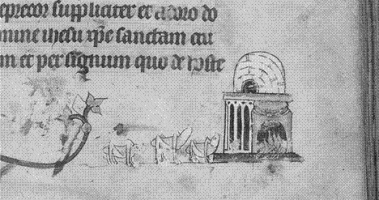 eprecor suppliciter et adoro do
mine ihesu xpe sanctam cru
m et per signum quo de hoste